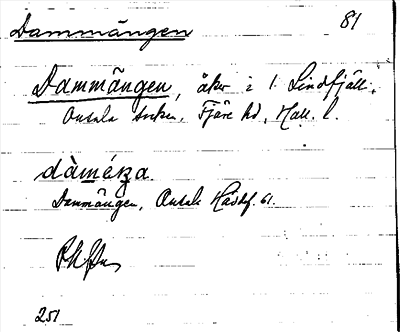 Dammängen 81
Dammängen, åker i 1. Lindfjäll.
Onsala socken, Fjäre hd, Hall. l.
dàméŋa.
Dammängen, Onsala
251